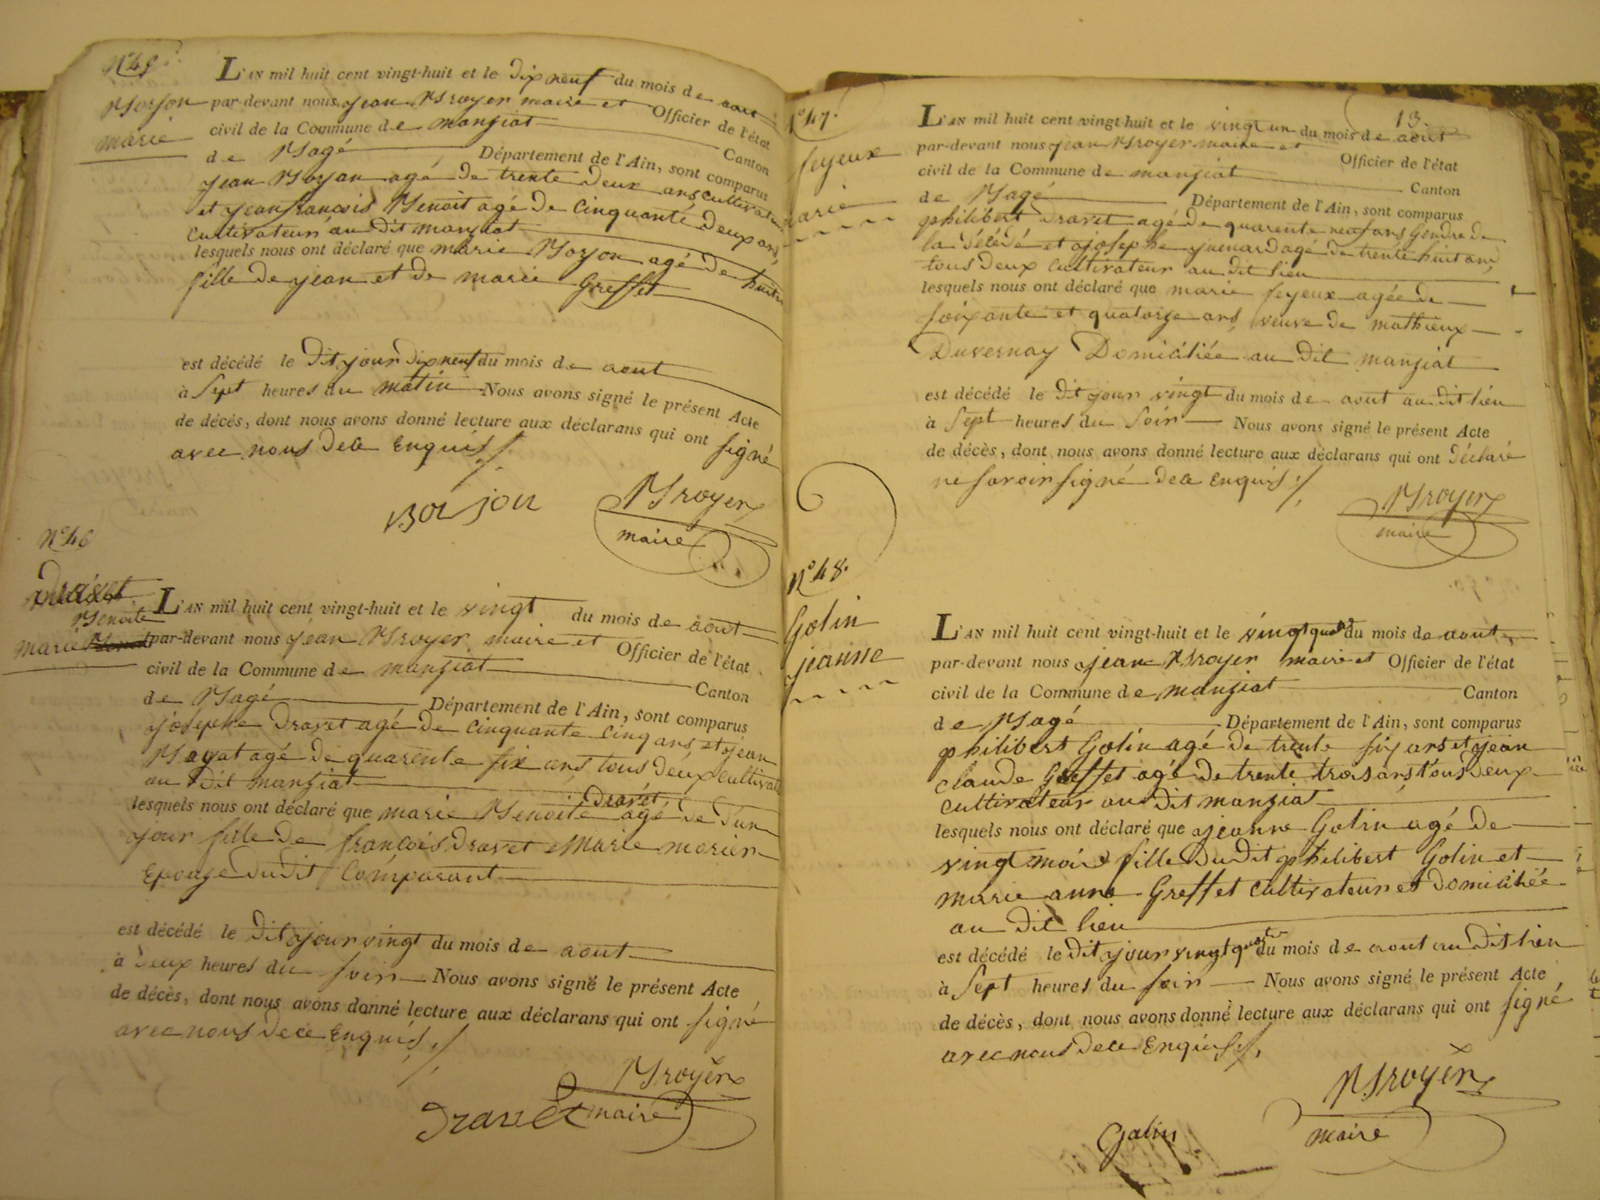 N° 45
Borjon
marie
L'AN mil huit cent vingt-huit et le dix neuf du mois de aout
par-devant nous jean Broyer maire et Officier de l'état
civil de la Commune de manziat Canton
de Bagé Département de l'Ain, sont comparus
jean Borjon agé de trente deux ans cultivateur
et jean françois Benoit agé de Cinquante deux ans,
cultivateur au dit manziat
lesquels nous ont déclaré que marie Borjon agé de huit
fille de jean et de marie Greffet
est décédé le dit jour dix neuf du mois de aout
à Sept heures du matin Nous avons signé le présent Acte
de décès, dont nous avons donné lecture aux déclarans qui ont signé
avec nous de ce Enquis
Borjon
Broyer
maire
N° 46
Dravet
Benoite
marie
L'AN mil huit cent vingt-huit et le vingt du mois de aout
par-devant nous jean Broyer maire et Officier de l'état
civil de la Commune de manziat Canton
de Bagé Département de l'Ain, sont comparus
josephe Dravet agé de Cinquante Cinq ans, et jean
agé de quarente six ans, tous deux cultivat
au dit manziat
Dravet
lesquels nous ont déclaré que marie Benoite agé de d'un
jour fille de françois Dravet et Marie morier
Epouse du dit Comparant
est décédé le dit jour vingt du mois de aout
à deux heures du soir Nous avons signé le présent Acte
de décès, dont nous avons donné lecture aux déclarans qui ont signé
avec nous de ce Enquis
Broyer
Dravet maire
13.
N° 47.
feyeux
marie
L'AN mil huit cent vingt-huit et le vingt un du mois de aout
par-devant nous jean Broyer maire et Officier de l'état
civil de la Commune de manziat Canton
de Bagé Département de l'Ain, sont comparus
philibert Dravet agé de quarente neuf ans Gendre de
la décédé et josephe agé de trente huit ans
tous deux cultivateur au dit lieu
lesquels nous ont déclaré que marie feyeux agée de
soixante et quatorze ans, veuve de mathieux
Duvernay Domiciliée au dit manziat
est décédé le dit jour vingt du mois de aout au dit lieu
à Sept heures du Soir Nous avons signé le présent Acte
de décès, dont nous avons donné lecture aux déclarans qui ont déclaré
ne savoir signé de ce Enquis
Broyer
maire
N° 48.
Golin
jeanne
L'AN mil huit cent vingt-huit et le vingt quatre du mois de aout
par-devant nous jean Broyer maire et Officier de l'état
civil de la Commune de manziat Canton
de Bagé Département de l'Ain, sont comparus
philibert Golin agé de trente six ans et jean
claude Greffet agé de trente trois ans tous deux
cultivateur au dit manziat
lesquels nous ont déclaré que jeanne Golin agé de
vingt mois fille du dit philibert Golin et
marie anne Greffet cultivateur et domiciliée
au dit lieu
est décédé le dit jour vingt quatre du mois de aout au dit lieu
à Sept heures du soir Nous avons signé le présent Acte
de décès, dont nous avons donné lecture aux déclarans qui ont signé
avec nous de ce Enquis
Broyer
Golin maire